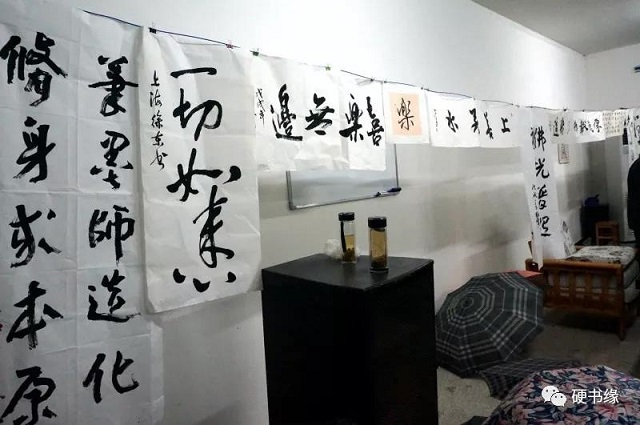 筆墨師造化
脩身求本原
一切如来心
上海徐东书
喜樂無邊
樂
上善若水
佛光普照
硬书缘